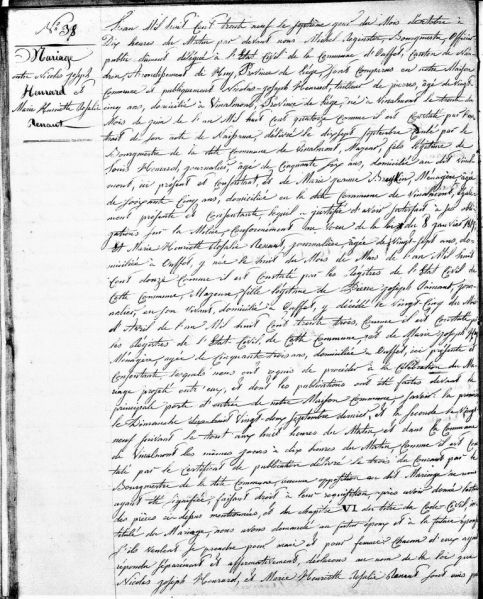 N.° 38
Mariage
entre Nicolas Joseph
Honrard et
Marie Henriette Rosalie
Renant
L'an Mil huit Cent trente neuf le septième jour du Mois d'octobre à
Dix heures du Matin par devant nous Michel Bourgmestre, Officier
public délégué à l'Etat Civil de la Commune d'Ouffet, Canton de Nan-
drin, Arrondissement de Huy, Province de Liège, sont Comparus en notre Maison
Commune et publiquement Nicolas-Joseph Honrard, tailleur de pierres, âgé de vingt
cinq ans, domicilié à Vinalmont, Province de Liège, né à Vinalmont le trente du
Mois de juin de l'an Mil huit Cent quatorze Comme il est Constaté par l'ex-
trait de son acte de Naissance, délivré le dix sept Septembre par le
Bourgmestre de la dite Commune de Vinalmont, Majeur, fils légitime de
Louis Honrard, journalier, âgé de Cinquante six ans, domicilié au dit Vinal-
mont, ici présent et Consentant, et de Marie Jeanne Ménagère âgée
de soixante Cinq ans, domiciliée en la dite Commune de Vinalmont, égale-
ment présente et Consentante, lequel a justifié d'avoir satisfait à ses obli-
gations sur la Milice, Conformément au Voeu de la loi du 8 janvier 1817
Et Marie Henriette Rosalie Renant, journalière, âgée de Vingt sept ans, do-
miciliée à Ouffet, y née le huit du Mois de Mars de l'an Mil huit
Cent douze Comme il est Constaté par les Registres de l'Etat Civil de
Cette Commune, Majeure, fille légitime de Pierre Joseph jour-
nalier, en son Vivant, domicilié à Ouffet, y décédé le Vingt-Cinq du Mois
d'Avril de l'an Mil huit Cent trente trois, Comme il est Constaté par
les Registres de l'Etat Civil, de Cette Commune, et de Marie Joseph
Ménagère âgée de Cinquante trois ans, domiciliée à Ouffet, ici présente et
Consentante, lesquels nous ont requis de procéder à la Célébration du Ma-
riage projeté entr'eux, et dont les publications ont été faites devant la
principale porte d'entrée de notre Maison Commune, savoir: la première
le Dimanche Vingt-deux Septembre dernier, et la seconde le Vingt
neuf suivant le tout aux huit heures du Matin et dans la Commune
de Vinalmont les mêmes jours à dix heures du Matin, Comme il est Cons-
taté par le Certificat de publication délivré le trois du Courant par le
Bourgmestre de la dite Commune, aucune opposition au dit Mariage ne nous
ayant été signifiée, faisant droit à leur réquisition, après avoir donné lecture
des pièces ci-dessus mentionnées, et du Chapitre VI du titre du Code Civil, in-
titulé du Mariage, nous avons demandé au futur époux et à la future épouse
s'ils veulent se prendre pour mari et pour femme; Chacun d'eux ayant
répondu séparément et affirmativement, déclarons au nom de la loi que
Nicolas Joseph Honrard, et Marie Henriette Rosalie Renant sont unis par